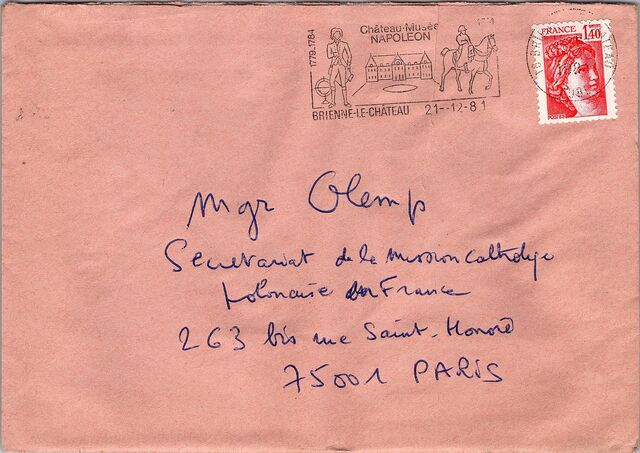 Château-Musée
NAPOLEON
1779.1784
BRIENNE-LE-CHÂTEAU 21--12-81
FRANCE 1,40
POSTES
Mgr Glemp
Secretariat de la Mission Catholique
Polonaise en France
263 bis rue Saint-Honoré
75001 PARIS